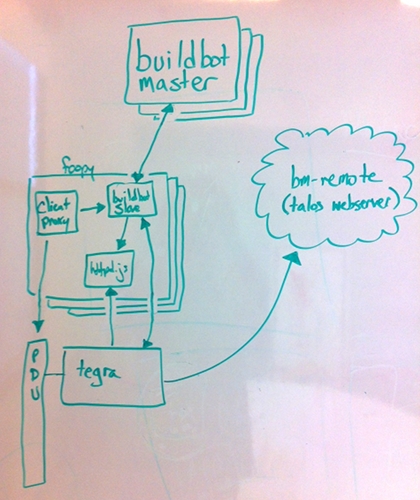 buildbot
master
foopy
Client
proxy
buildbot
Slave
httpd.js
bm-remote
(talos webserver)
PDU
tegra